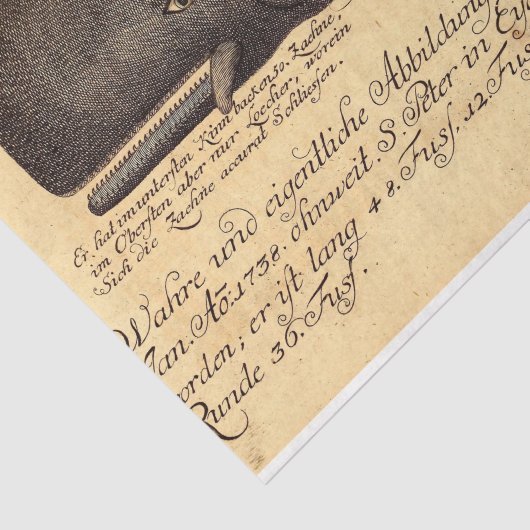 Er, hat im untersten Kinn backen 50. Zaehne,
im Obersten aber nur Loecher, worein
Sich die Zaehne accurat Schliessen.
Wahre und eigentliche Abbildung
Jan. Aõ: 1738. ohnweit. S. Peter in Ey
worden; er ist lang 48. Fuss, 12. Fuss
Runde 36. Fuss.